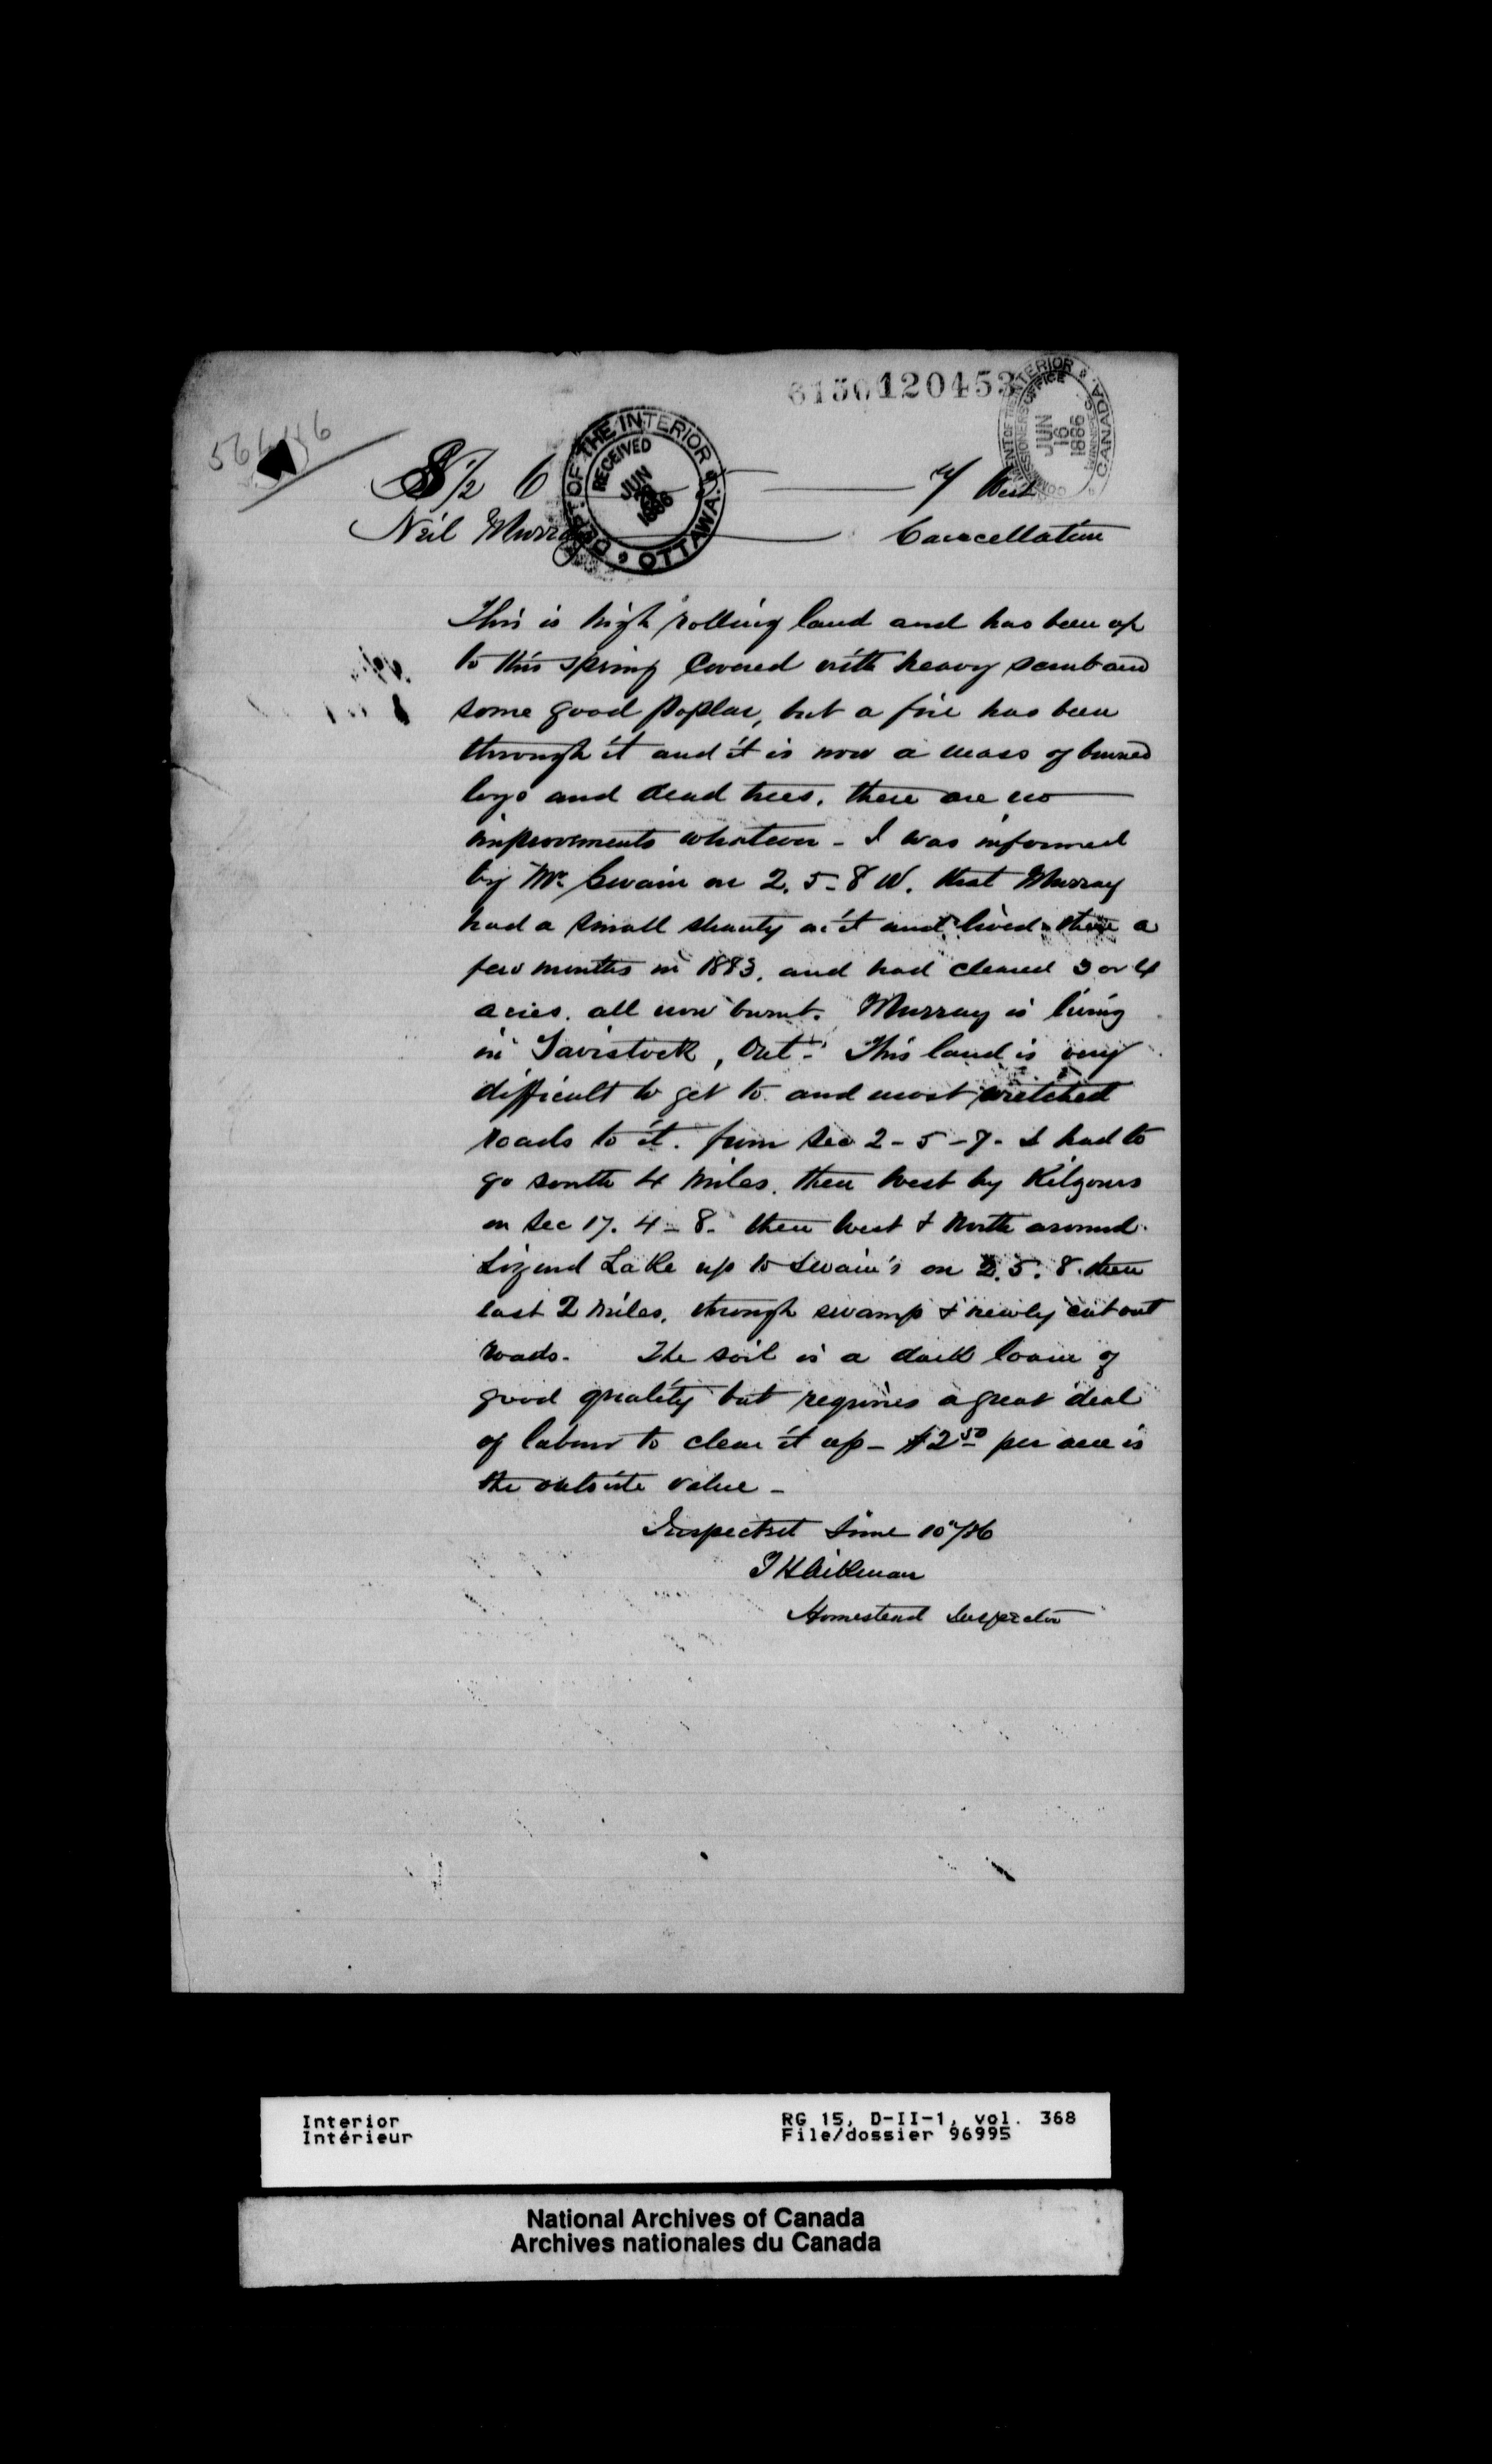 120453
DEPT. OF THE INTERIOR
RECEIVED
JUN
1886
OTTAWA
JUN
16
1886
CANADA
S 1/2 6 — 5 — 7 West
Neil Murray — Cancellation
This is high rolling land and has been up
to this spring Covered with heavy scrub and
some good Poplar, but a fire has been
through it and it is now a mass of burned
logs and dead trees. there are no
improvements whatever - I was informed
by Mr. Swain on 2. 5 - 8 W. that Murray
had a small shanty on it and lived there a
few months in 1883, and had cleared 3 or 4
acres. all now burnt. Murray is living
in Tavistock, Ont - This land is very
difficult to get to and most wretched
roads to it. from Sec 2 - 5 - 7 - I had to
go south 4 miles. then West by Kilgours
on Sec 17. 4 - 8 - then West & North around
Lake up to Swain's on 2. 5. 8. then
east 2 miles, through swamp & newly cut out
roads. The soil is a dark loam of
good quality but requires a great deal
of labour to clear it up - $2 50 per acre is
the outside value -
Inspected June 10/86
Homestead Inspector
Interior
Intérieur
RG 15, D-II-1, vol. 368
File/dossier 96995
National Archives of Canada
Archives nationales du Canada